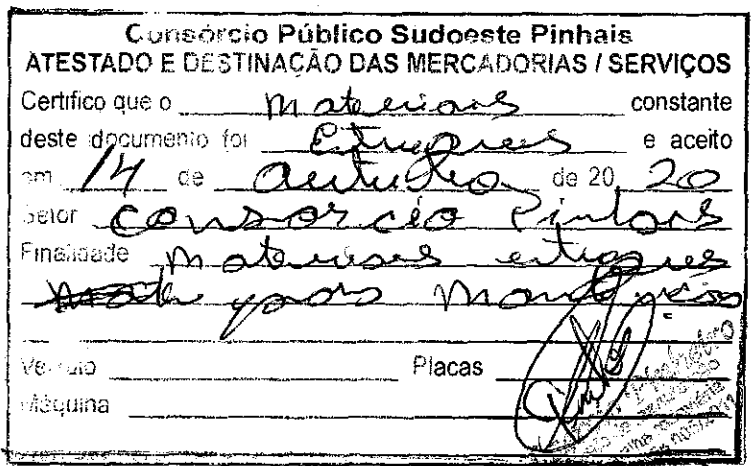 Consórcio Público Sudoeste Pinhais
ATESTADO E DESTINAÇÃO DAS MERCADORIAS / SERVIÇOS
Certifico que o materiais constante
deste documento foi Entregues e aceito
em 14 de outubro de 20 20
Setor Consorcio Pinhais
Finalidade Materiais entregues
para
Veículo Placas
Máquina